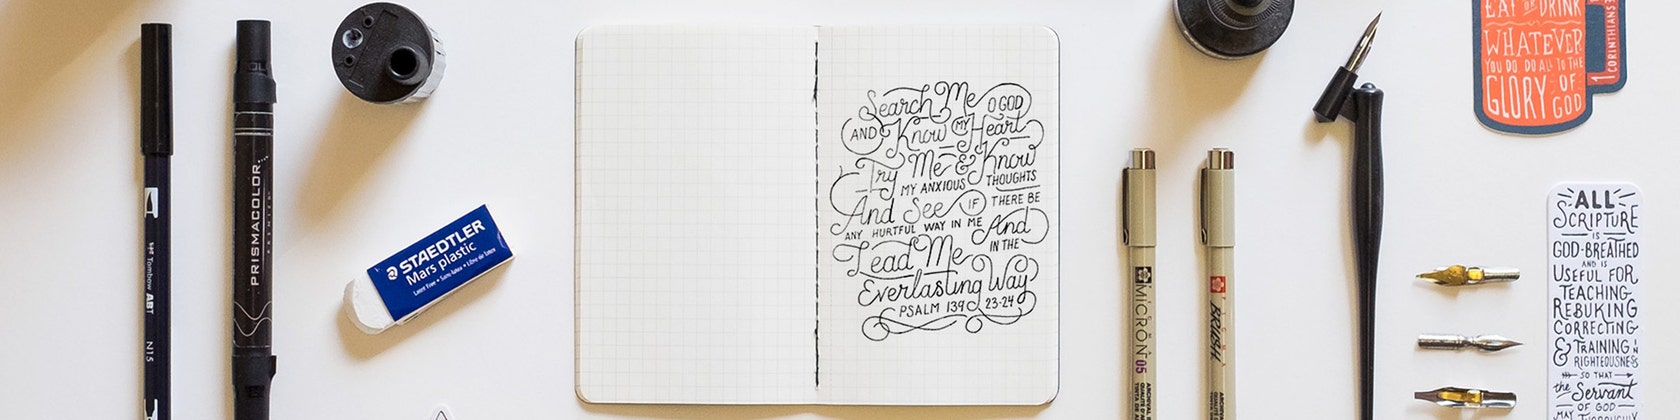 Tombow ABT
N15
PRISMACOLOR
PREMIER
STAEDTLER
Mars plastic
Search Me O GOD
AND Know MY Heart
Try Me & Know
MY ANXIOUS THOUGHTS
And See IF THERE BE
ANY HURTFUL WAY IN ME And
Lead Me IN THE
Everlasting Way
PSALM 139 23-24
MICRON 05
BRUSH
EAT OR DRINK
WHATEVER
YOU DO DO ALL TO THE
GLORY OF
GOD
1 CORINTHIANS
ALL
SCRIPTURE
IS
GOD-BREATHED
AND IS
USEFUL FOR
TEACHING
REBUKING
CORRECTING
& TRAINING IN
RIGHTEOUSNESS
SO THAT
the Servant
OF GOD
MAY THOROUGHLY